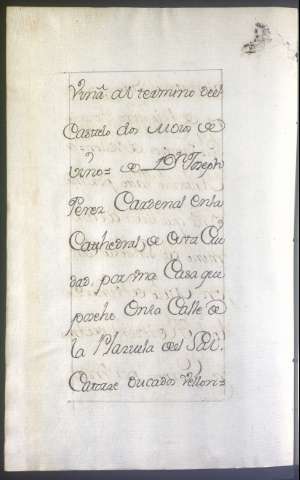 Viña al termino del
Castillo dos Moios de
vino= de Dn Joseph
Perez Cardenal en la
Cathedral, de esta Ciu
dad, por vna Casa que
posehe en la Calle de
la Plazuela del
Catorze Ducados Vellon=